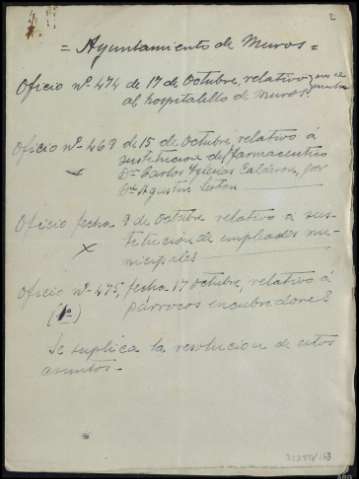 2
= Ayuntamiento de Muros =
Oficio nº 474 de 17 de Octubre, relativo
al hospitalillo de Muros.
Oficio nº 468 de 15 de Octubre, relativo á
sustitucion del farmaceutico
Dn Carlos Iglesias Calderon, por
Dn Agustin
Oficio fecha 8 de Octubre relativo a sus-
titución de empleados mu-
nicipales
Oficio nº 475, fecha 17 octubre, relativo á
(1º) párrocos encubridores
Se suplica la resolucion de estos
asuntos.-